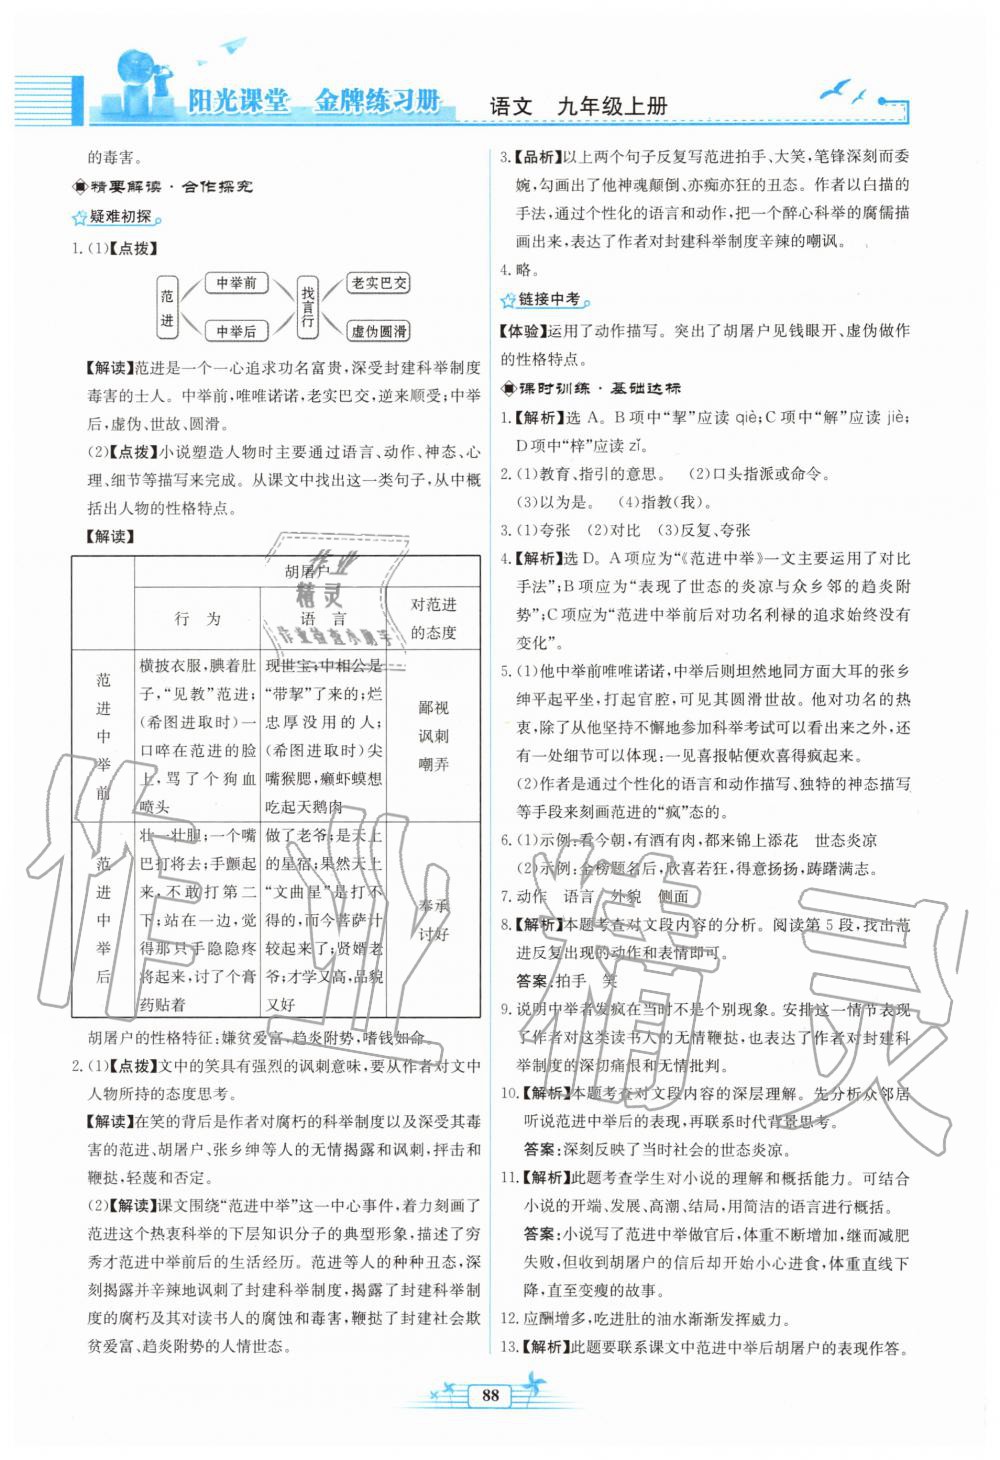 阳光课堂 金牌练习册 语文 九年级上册
的毒害。
精要解读·合作探究
疑难初探
1.(1)【点拨】
范进
中举前
中举后
找言行
老实巴交
虚伪圆滑
【解读】范进是一个一心追求功名富贵,深受封建科举制度
毒害的士人。中举前,唯唯诺诺,老实巴交,逆来顺受;中举
后,虚伪、世故、圆滑。
(2)【点拨】小说塑造人物时主要通过语言、动作、神态、心
理、细节等描写来完成。从课文中找出这一类句子,从中概
括出人物的性格特点。
【解读】
胡屠户
行 为
语 言
对范进
的态度
范进中举前
横披衣服,腆着肚
子,“见教”范进;
(希图进取时)一
口啐在范进的脸
上,骂了个狗血
喷头
现世宝;中相公是
“带挈”了来的;烂
忠厚没用的人;
(希图进取时)尖
嘴猴腮,癞虾蟆想
吃起天鹅肉
鄙视
讽刺
嘲弄
范进中举后
壮一壮胆;一个嘴
巴打将去;手颤起
来,不敢打第二
下;站在一边,觉
得那只手隐隐疼
将起来,讨了个膏
药贴着
做了老爷;是天上
的星宿;果然天上
“文曲星”是打不
得的,而今菩萨计
较起来了;贤婿老
爷;才学又高,品貌
又好
奉承
讨好
胡屠户的性格特征:嫌贫爱富,趋炎附势,嗜钱如命。
2.(1)【点拨】文中的笑具有强烈的讽刺意味,要从作者对文中
人物所持的态度思考。
【解读】在笑的背后是作者对腐朽的科举制度以及深受其毒
害的范进、胡屠户、张乡绅等人的无情揭露和讽刺,抨击和
鞭挞,轻蔑和否定。
(2)【解读】课文围绕“范进中举”这一中心事件,着力刻画了
范进这个热衷科举的下层知识分子的典型形象,描述了穷
秀才范进中举前后的生活经历。范进等人的种种丑态,深
刻揭露并辛辣地讽刺了封建科举制度,揭露了封建科举制
度的腐朽及其对读书人的腐蚀和毒害,鞭挞了封建社会欺
贫爱富、趋炎附势的人情世态。
3.【品析】以上两个句子反复写范进拍手、大笑,笔锋深刻而委
婉,勾画出了他神魂颠倒、亦痴亦狂的丑态。作者以白描的
手法,通过个性化的语言和动作,把一个醉心科举的腐儒描
画出来,表达了作者对封建科举制度辛辣的嘲讽。
4.略。
链接中考
【体验】运用了动作描写。突出了胡屠户见钱眼开、虚伪做作
的性格特点。
课时训练·基础达标
1.【解析】选 A。B 项中“挈”应读 qiè;C 项中“解”应读 jiè;
D 项中“梓”应读 zǐ。
2.(1)教育、指引的意思。 (2)口头指派或命令。
(3)以为是。 (4)指教(我)。
3.(1)夸张 (2)对比 (3)反复、夸张
4.【解析】选 D。A 项应为“《范进中举》一文主要运用了对比
手法”;B 项应为“表现了世态的炎凉与众乡邻的趋炎附
势”;C 项应为“范进中举前后对功名利禄的追求始终没有
变化”。
5.(1)他中举前唯唯诺诺,中举后则坦然地同方面大耳的张乡
绅平起平坐,打起官腔,可见其圆滑世故。他对功名的热
衷,除了从他坚持不懈地参加科举考试可以看出来之外,还
有一处细节可以体现:一见喜报帖便欢喜得疯起来。
(2)作者是通过个性化的语言和动作描写、独特的神态描写
等手段来刻画范进的“疯”态的。
6.(1)示例:看今朝,有酒有肉,都来锦上添花 世态炎凉
(2)示例:金榜题名后,欣喜若狂,得意扬扬,踌躇满志。
7.动作 语言 外貌 侧面
8.【解析】本题考查对文段内容的分析。阅读第 5 段,找出范
进反复出现的动作和表情即可。
答案:拍手 笑
9.说明中举者发疯在当时不是个别现象。安排这一情节表现
了作者对这类读书人的无情鞭挞,也表达了作者对封建科
举制度的深切痛恨和无情批判。
10.【解析】本题考查对文段内容的深层理解。先分析众邻居
听说范进中举后的表现,再联系时代背景思考。
答案:深刻反映了当时社会的世态炎凉。
11.【解析】此题考查学生对小说的理解和概括能力。可结合
小说的开端、发展、高潮、结局,用简洁的语言进行概括。
答案:小说写了范进中举做官后,体重不断增加,继而减肥
失败,但收到胡屠户的信后却开始小心进食,体重直线下
降,直至变瘦的故事。
12.应酬增多,吃进肚的油水渐渐发挥威力。
13.【解析】此题要联系课文中范进中举后胡屠户的表现作答。
88
作业精灵
作业检查小助手
作业精灵